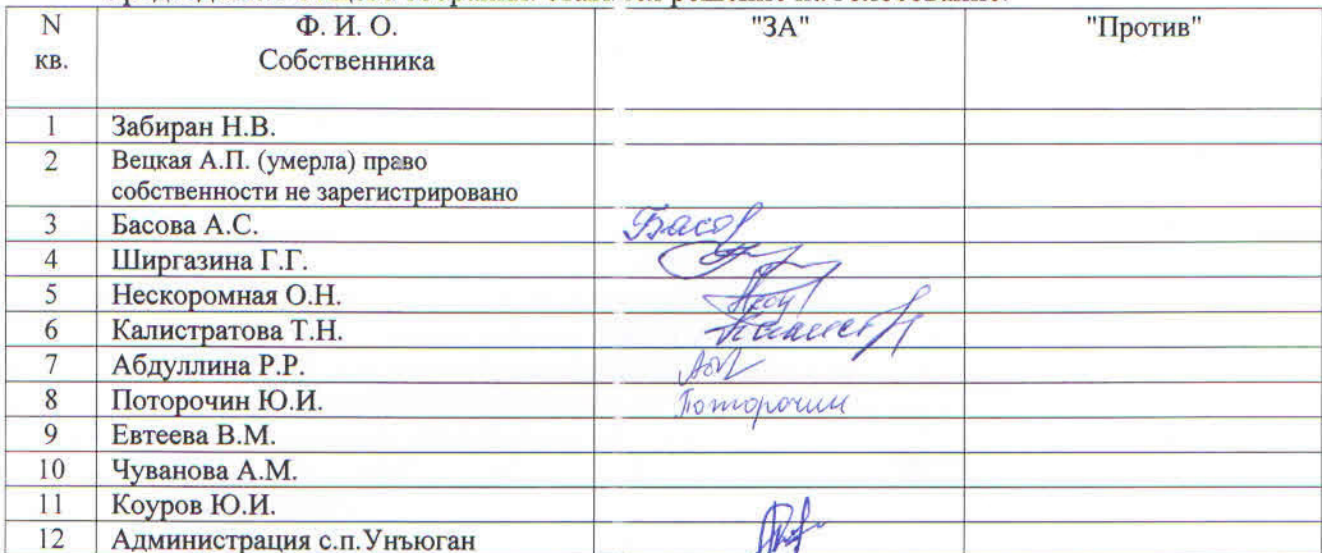 N Ф. И. О. "ЗА" "Против"
кв. Собственника
1 Забиран Н.В.
2 Вецкая А.П. (умерла) право
собственности не зарегистрировано
3 Басова А.С. Басов
4 Ширгазина Г.Г.
5 Нескоромная О.Н.
6 Калистратова Т.Н.
7 Абдуллина Р.Р.
8 Поторочин Ю.И. Поторочин
9 Евтеева В.М.
10 Чуванова А.М.
11 Коуров Ю.И.
12 Администрация с.п.Унъюган